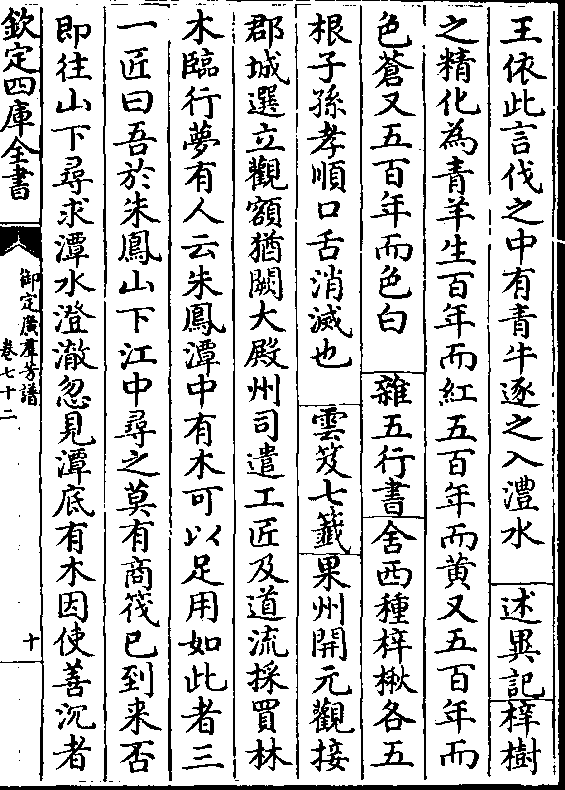 王依此言伐之中有青牛逐之入澧水　述異記梓樹
之精化為青羊生百年而紅五百年而黄又五百年而
色蒼又五百年而色白　雜五行書舍西種梓楸各五
根子孫孝順口舌消滅也　雲笈七籤果州開元觀接
郡城選立觀額猶闕大殿州司遣工匠及道流採買林
木臨行夢有人云朱鳳潭中有木可以足用如此者三
一匠曰吾於朱鳳山下江中尋之莫有商筏已到来否
即往山下尋求潭水澄澈忽見潭底有木因使善沉者
欽定四庫全書
御定廣羣芳譜
卷七十二
十